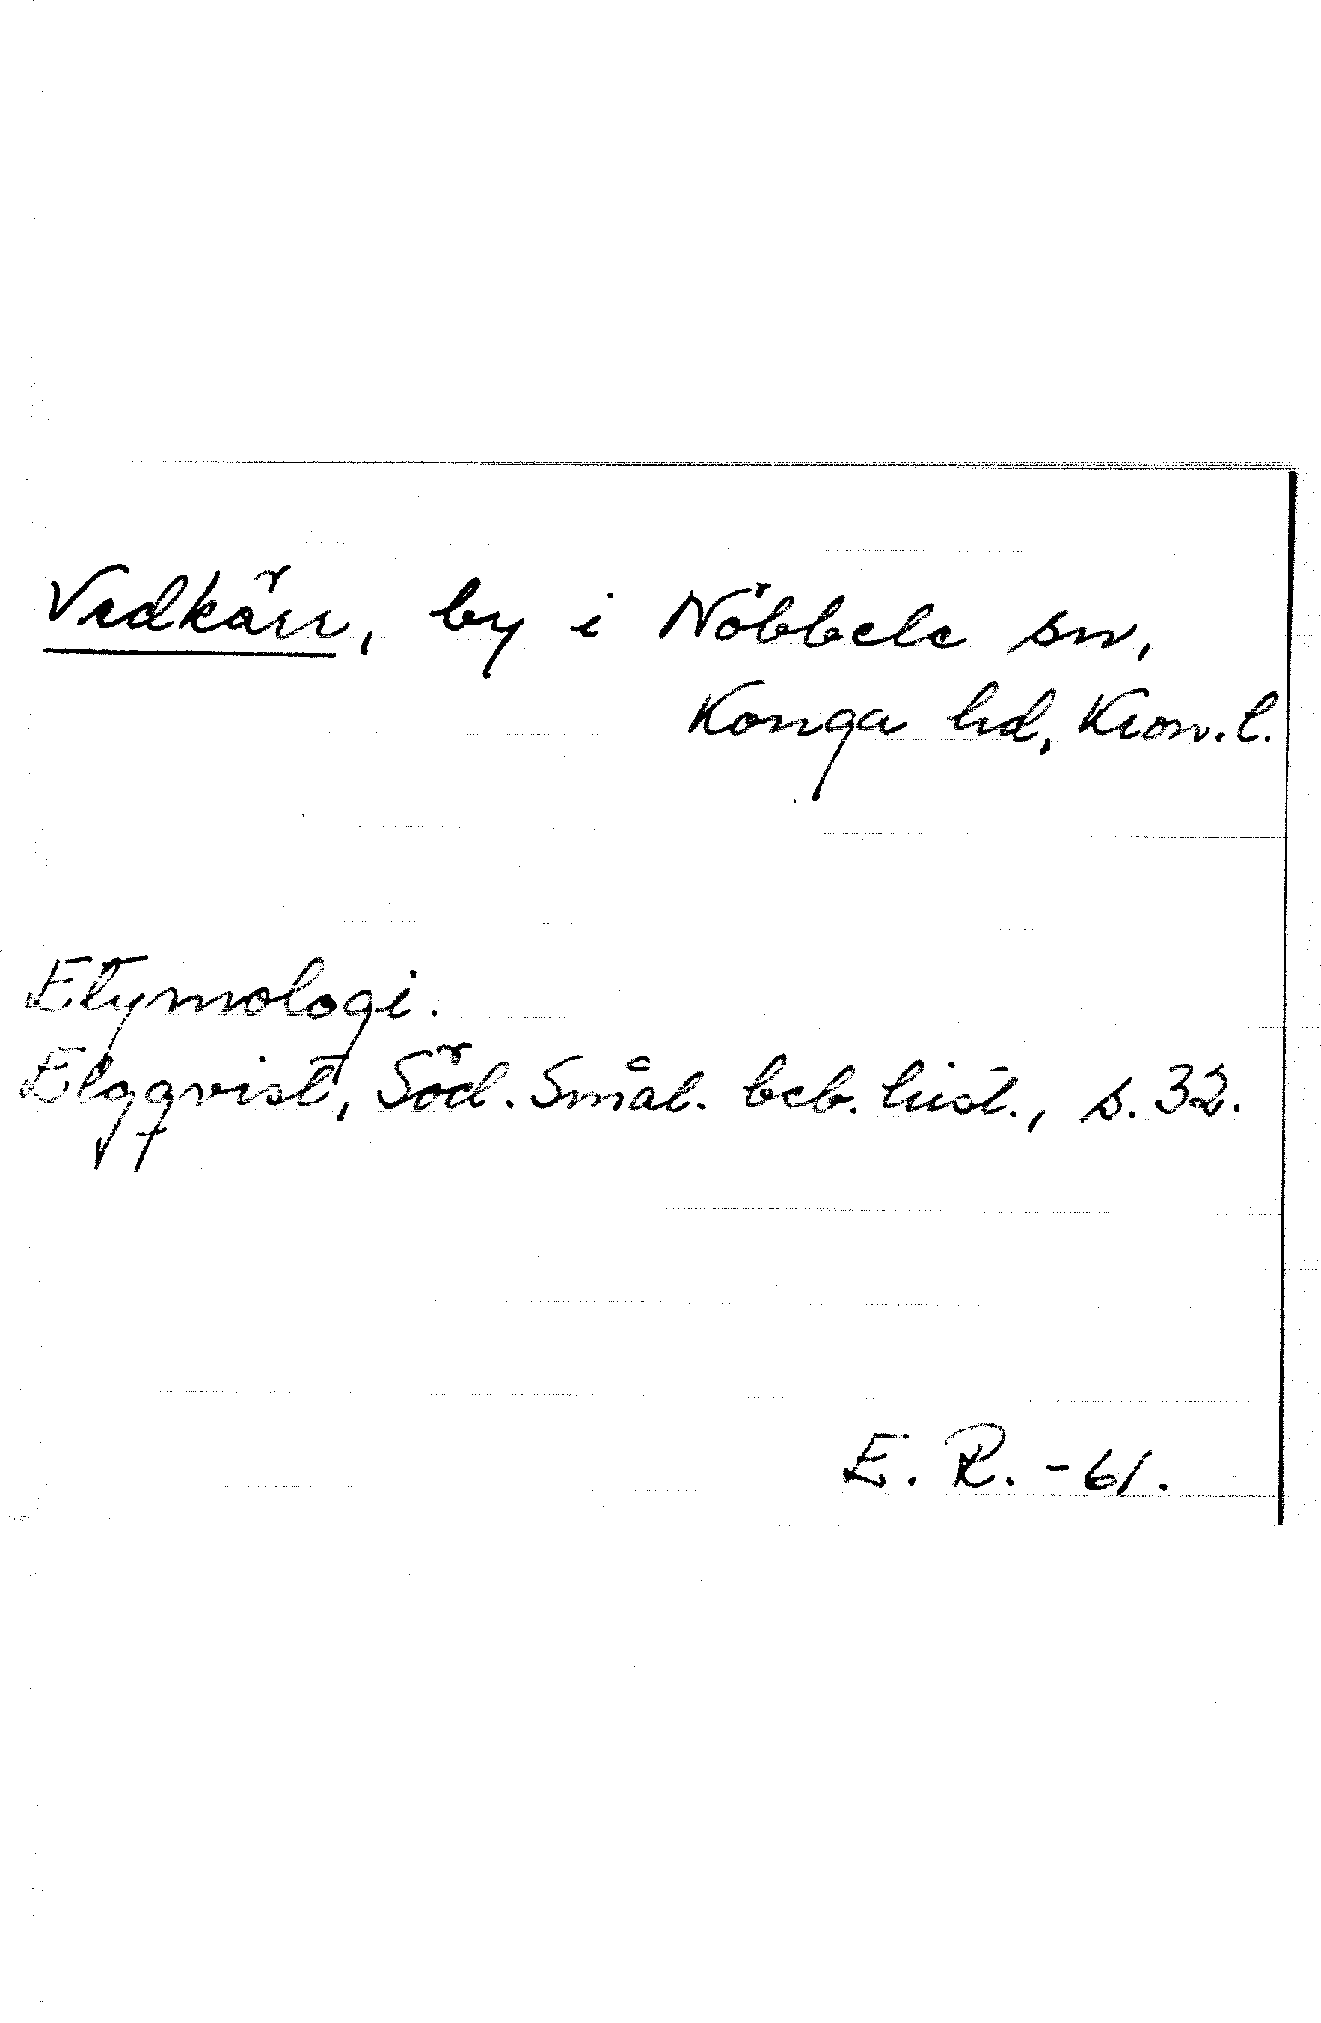 Vedkärr, by i Nöbbele sn,
Konga hd, Kron.l.
Etymologi.
Elgqvist, Söd. Smål. beb. hist., s. 32.
E. R. -61.